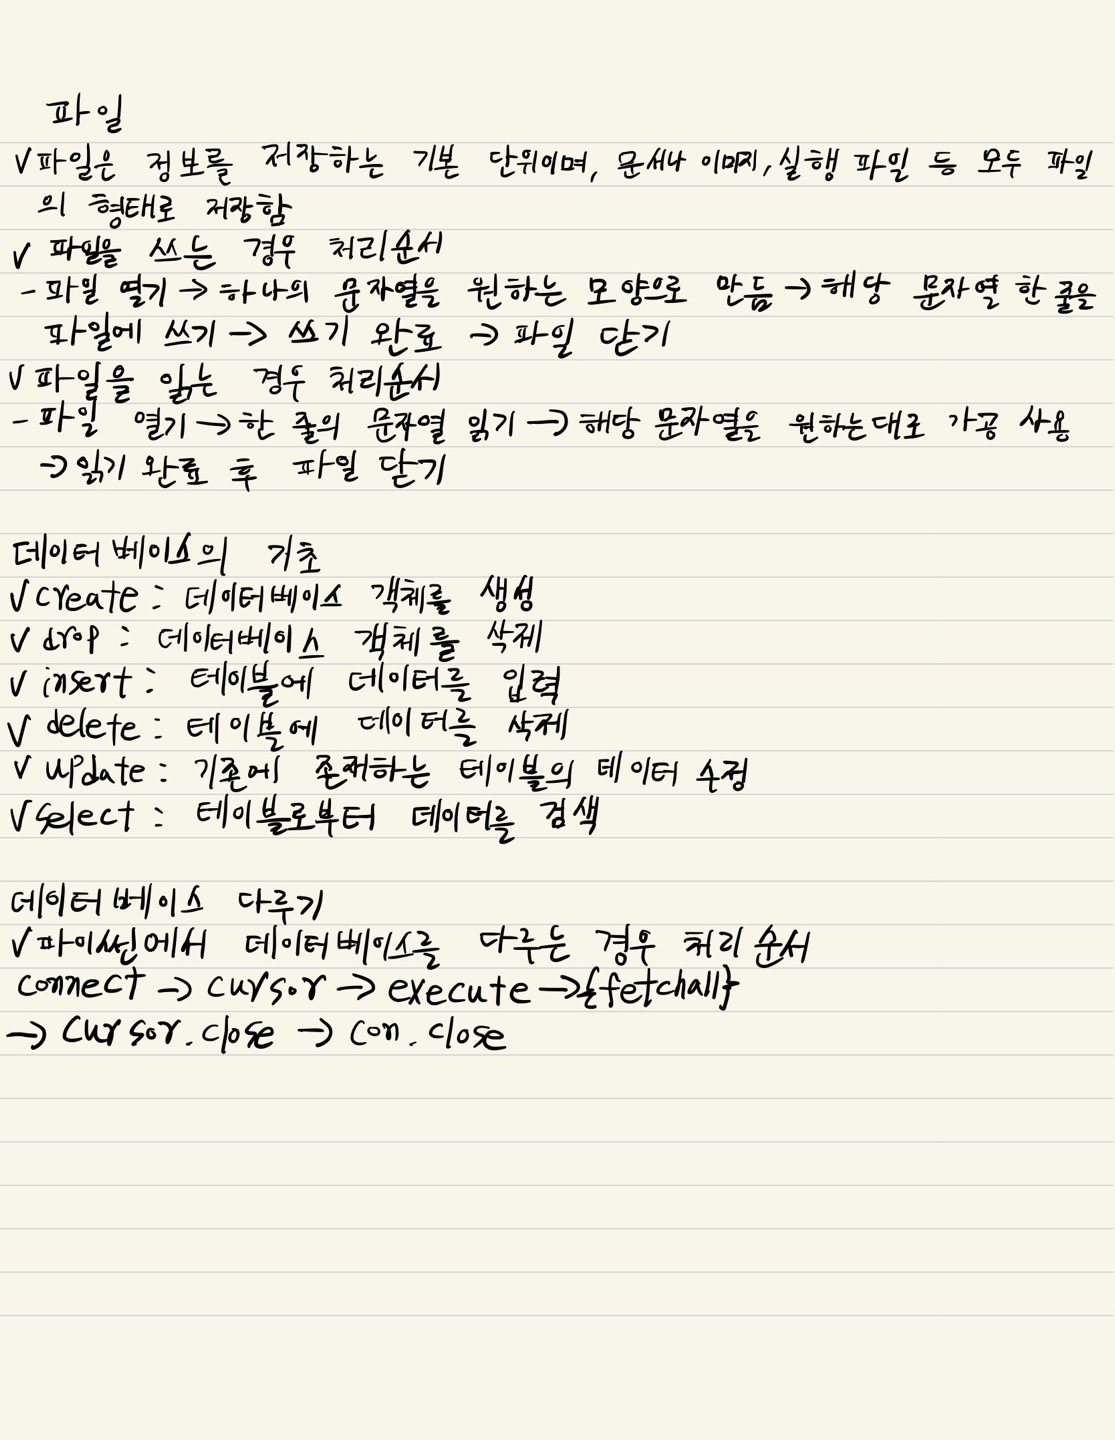 파일
✓파일은 정보를 저장하는 기본 단위이며, 문서나 이미지, 실행 파일 등 모두 파일
의 형태로 저장함
✓ 파일을 쓰는 경우 처리순서
- 파일 열기 → 하나의 문자열을 원하는 모양으로 만듦 → 해당 문자열 한 줄을
파일에 쓰기 → 쓰기 완료 → 파일 닫기
✓파일을 읽는 경우 처리순서
- 파일 열기 → 한 줄의 문자열 읽기 → 해당 문자열을 원하는대로 가공 사용
→ 읽기 완료 후 파일 닫기
데이터베이스의 기초
✓create : 데이터베이스 객체를 생성
✓ drop : 데이터베이스 객체를 삭제
✓ insert : 테이블에 데이터를 입력
✓ delete : 테이블에 데이터를 삭제
✓ update : 기존에 존재하는 테이블의 데이터 수정
✓select : 테이블로부터 데이터를 검색
데이터베이스 다루기
✓파이썬에서 데이터베이스를 다루는 경우 처리 순서
connect → cursor → execute → {fetchall}
→ cursor.close → con.close